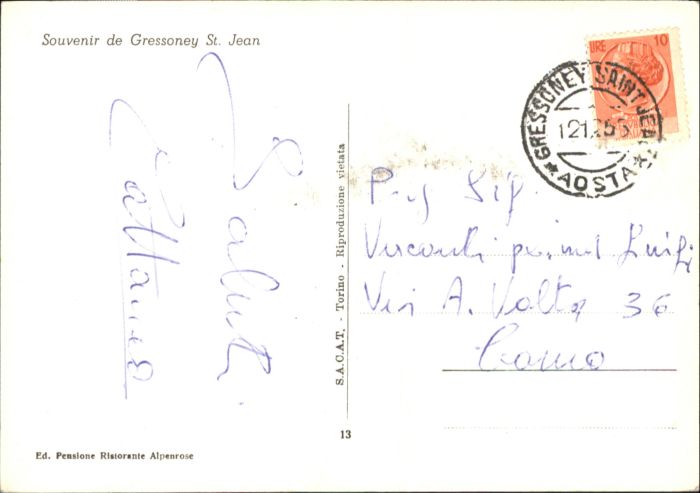 Souvenir de Gressoney St. Jean
Saluti
Cattaneo
S.A.C.A.T. - Torino - Riproduzione vietata
LIRE 10
GRESSONEY SAINT JEAN
AOSTA
Sig.
Visconti Luigi
Via A. Volta 36
Como
13
Ed. Pensione Ristorante Alpenrose